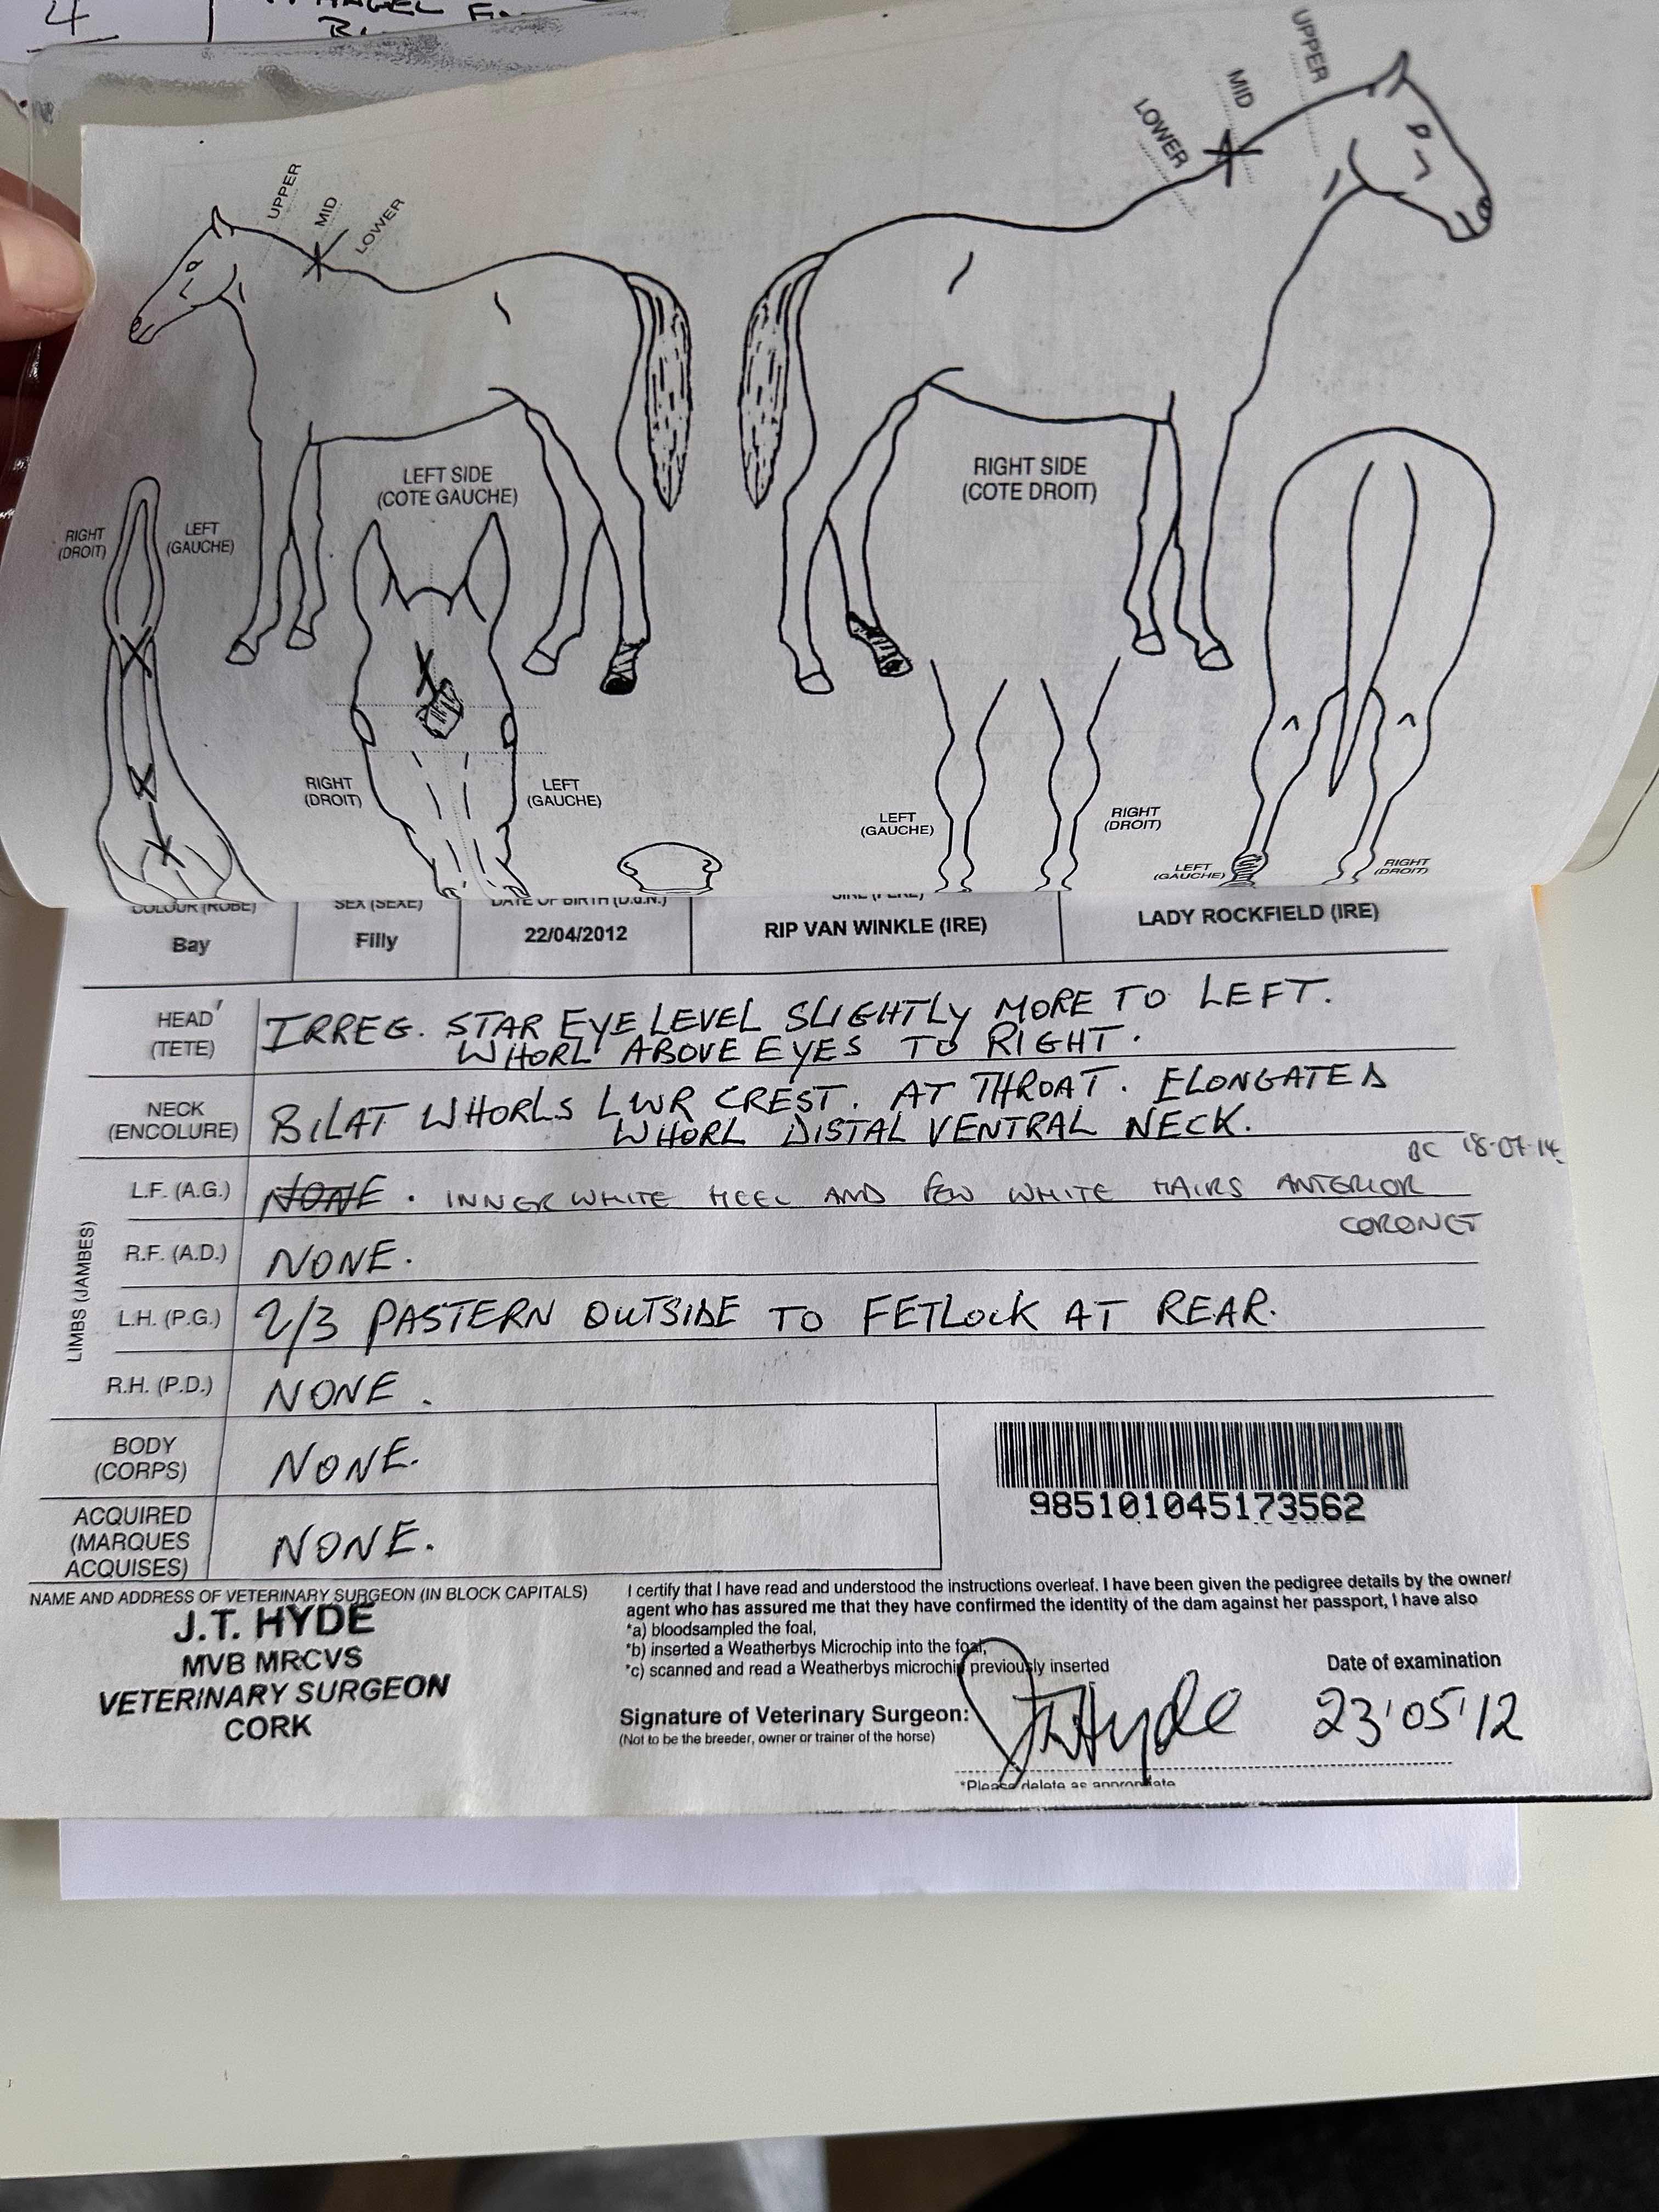 4
UPPER
MID
LOWER
UPPER
MID
LOWER
LEFT SIDE
(COTE GAUCHE)
RIGHT SIDE
(COTE DROIT)
RIGHT
(DROIT)
LEFT
(GAUCHE)
RIGHT
(DROIT)
LEFT
(GAUCHE)
LEFT
(GAUCHE)
RIGHT
(DROIT)
LEFT
(GAUCHE)
RIGHT
(DROIT)
COLOUR (ROBE) SEX (SEXE) DATE OF BIRTH (D.d.N.) SIRE (PERE)
Bay Filly 22/04/2012 RIP VAN WINKLE (IRE) LADY ROCKFIELD (IRE)
HEAD
(TETE)
IRREG. STAR EYE LEVEL SLIGHTLY MORE TO LEFT.
WHORL ABOVE EYES TO RIGHT.
NECK
(ENCOLURE)
BILAT WHORLS LWR CREST. AT THROAT. ELONGATED
WHORL DISTAL VENTRAL NECK.
BC 18-07-14
LIMBS (JAMBES)
L.F. (A.G.) NONE. INNER WHITE HEEL AND FEW WHITE HAIRS ANTERIOR
CORONET
R.F. (A.D.) NONE.
L.H. (P.G.) 2/3 PASTERN OUTSIDE TO FETLOCK AT REAR.
R.H. (P.D.) NONE.
BODY
(CORPS)
NONE.
ACQUIRED
(MARQUES
ACQUISES)
NONE.
985101045173562
NAME AND ADDRESS OF VETERINARY SURGEON (IN BLOCK CAPITALS)
J.T. HYDE
MVB MRCVS
VETERINARY SURGEON
CORK
I certify that I have read and understood the instructions overleaf. I have been given the pedigree details by the owner/
agent who has assured me that they have confirmed the identity of the dam against her passport, I have also
*a) bloodsampled the foal,
*b) inserted a Weatherbys Microchip into the foal,
*c) scanned and read a Weatherbys microchip previously inserted
Signature of Veterinary Surgeon:
(Not to be the breeder, owner or trainer of the horse)
JTHyde
Date of examination
23'05'12
*Please delete as appropriate